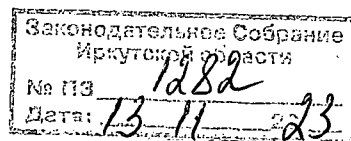 Законодательное Собрание
Иркутской области
№ ПЗ 1282
Дата: 13 11 2023